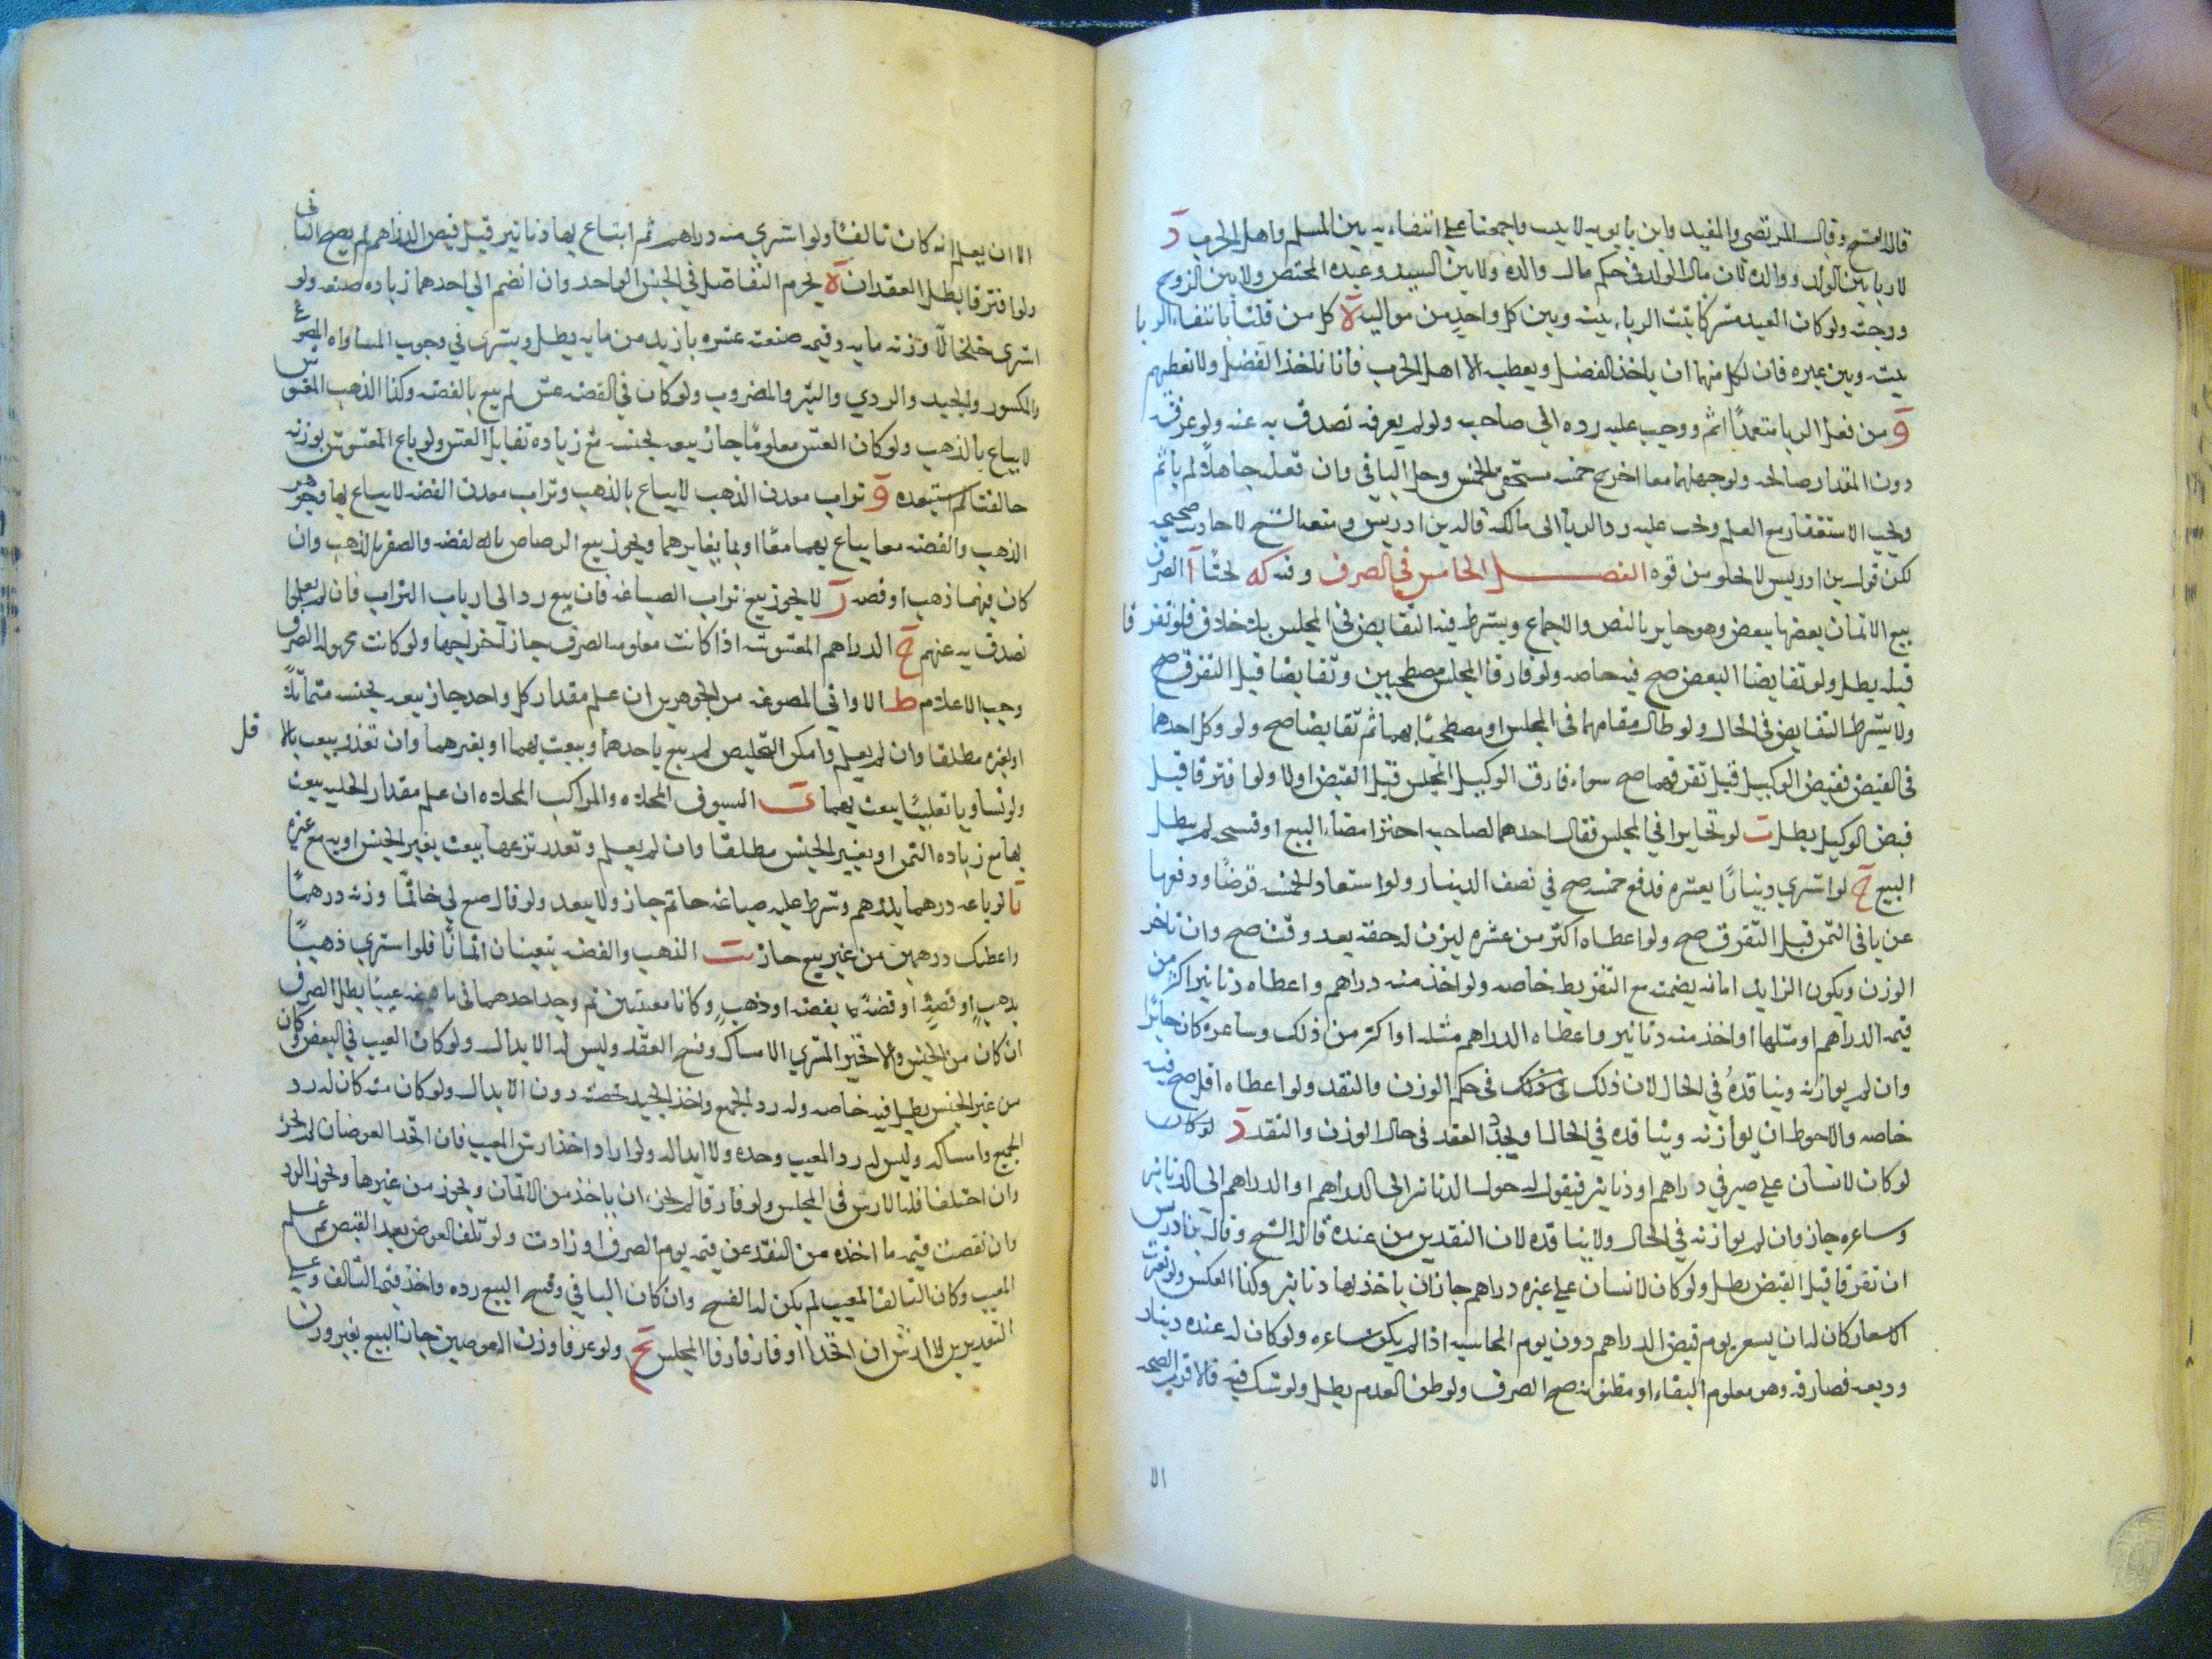 قاله الشيخ وقال المرتضى والمفيد وابن بابويه لا يثبت واجمعنا على انتفائه بين المسلم واهل الحرب د
لا ربا بين الولد ووالده لان مال الولد في حكم مال والده ولا بين السيد وعبده المختص ولا بين الزوج
وزوجته ولو كان العبد مشتركا ثبت الربا بينه وبين كل واحد من مواليه ه كل من قلنا بانتفاء الربا
بينه وبين غيره فان لكل منهما ان ياخذ الفضل ويعطيه الا اهل الحرب فانا ناخذ الفضل ولا نعطيهم
و من فعل الربا متعمدًا اثم ووجب عليه رده الى صاحبه ولو لم يعرفه تصدق به عنه ولو عرفه
دون المقدار صالحه ولو جهلهما معا اخرج خمسه لمستحقي الخمس وحل الباقي وان فعله جاهلًا لم ياثم
ويجب الاستغفار مع العلم ويجب عليه رد الربا الى مالكه قاله بن ادريس ومنعه الشيخ لاحاديث صحيحه
لكن قول بن ادريس لا يخلو من قوه الفصل الخامس في الصرف وفيه كه بحثًا ا الصرف
بيع الاثمان بعضها ببعض وهو جايز بالنص والاجماع ويشترط فيه التقابض في المجلس بلا خلاف فلو تفرقا
قبله بطل ولو تقابضا البعض صح فيه خاصه ولو فارقا المجلس مصطحبين وتقابضا قبل التفرق صح
ولا يشترط التقابض في الحال ولو طال مقامهما في المجلس او مصطحبًا لهما ثم تقابضا صح ولو وكل احدهما
في القبض فقبض الوكيل قبل تفرقهما صح سواء فارق الوكيل المجلس قبل القبض اولا ولو افترقا قبل
قبض الوكيل بطل ب لو تخايرا في المجلس فقال احدهما لصاحبه اختر امضاء البيع او فسخه لم يبطل
البيع ج لو اشترى دينارًا بعشره فدفع خمسه صح في نصف الدينار ولو استعاد الخمسه قرضًا ودفعها
عن باقي الثمن قبل التفرق صح ولو اعطاه اكثر من عشره ليزن له حقه بعد وقت صح وان تاخر
الوزن ويكون الزايد امانه يضمنه مع التفريط خاصه ولو اخذ منه دراهم واعطاه دنانير اكثر من
قيمه الدراهم او مثلها او اخذ منه دنانير واعطاه الدراهم مثله او اكثر من ذلك وساعره كان جائزا
وان لم يوازنه ويناقدُه في الحال لان ذلك في حكم الوزن والنقد ولو اعطاه اقل صح فيه
خاصه والاحوط ان يوازنه ويناقده في الحال او يجدد العقد في حال الوزن والنقد د لو كان
لو كان لانسان على صيرفي دراهم او دنانير فيقول له حول الدنانير الى الدراهم او الدراهم الى الدنانير
وساعره جاز وان لم يوازنه في الحال ولا يناقده لان النقدين من عنده قاله الشيخ وقال بن ادريس
ان تفرقا قبل القبض بطل ولو كان لانسان على غيره دراهم جاز ان ياخذ بها دنانير وكذا العكس ولو تغيرت
الاسعار كان له ان يسعر يوم قبض الدراهم دون يوم المحاسبه اذا لم يكن ساعره ولو كان له عنده دينار
وديعه فصارفه وهو معلوم البقاء او مظنونه صح الصرف ولو ظن العدم بطل ولو شك فيه فالاقرب الصحه
الا
الا ان يعلم انه كان تالفًا ولو اشترى منه دراهم ثم ابتاع بها دنانير قبل قبض الدراهم لم يصح الثاني
ولو افترقا بطل العقدان ه يحرم التفاضل في الجنس الواحد وان انضم الى احدهما زياده صنعه ولو
اشترى خلخالًا وزنه مايه وقيمه صنعته عشره بازيد من مايه بطل ويستوي في وجوب المساواه المصوغ
والمكسور والجيد والردي والتبر والمضروب ولو كان في الفضه غش لم يبع بالفضه وكذا الذهب المغشوش
لا يباع بالذهب ولو كان الغش معلومًا جاز بيعه بجنسه مع زياده تقابل الغش ولو باع المغشوش بوزنه
خالصًا لم استبعده و تراب معدن الذهب لا يباع بالذهب وتراب معدن الفضه لا يباع بها وجوهر
الذهب والفضه معا يباع بهما معًا او بما يغايرهما ويجوز بيع الرصاص بالفضه والصفر بالذهب وان
كان فيهما ذهب او فضه ز لا يجوز بيع تراب الصياغه فان بيع رد الى ارباب التراب فان لم يعلموا
تصدق به عنهم ح الدراهم المغشوشه اذا كانت معلومه الصرف جاز اخراجها ولو كانت مجهوله الصرف
وجب الاعلام ط الاواني المصوغه من الجوهرين ان علم مقدار كل واحد جاز بيعه بجنسه متماثلًا
او بغيره مطلقا وان لم يعلم وامكن التخليص لم يبع باحدهما وبيعت بهما او بغيرهما وان تعذر بيعت بالاقل
ولو تساويا تغليبًا بيعت بهما ي السيوف المحلاه والمراكب المحلاه ان علم مقدار الحليه بيعت
بها مع زياده الثمن او بغير الجنس مطلقا وان لم يعلم وتعذر نزعها بيعت بغير الجنس او به مع غيره
يا لو باعه درهما بدرهم وشرط عليه صياغه خاتم جاز ولا يبعد ولو قال صغ لي خاتمًا وزنه درهمًا
واعطيك درهمين من غير بيع جاز يب الذهب والفضه يتعينان اثمانًا فلو اشترى ذهبًا
بذهبٍ او فضةٍ او فضةً بفضه او ذهبٍ وكانا معينين ثم وجد احدهما في ما قبضه عيبًا بطل الصرف
ان كان من الجنس والا تخير المشتري الامساك وفسخ العقد وليس له الابدال ولو كان العيب في البعض وكان
من غير الجنس بطل فيه خاصه وله رد الجميع واخذ الجيد بحصته دون الابدال ولو كان منه كان له رد
الجميع وامساكه وليس له رد المعيب وحده ولا ابداله ولو اراد اخذ ارش المعيب فان اتحد العوضان لم يجز
وان اختلفا فله الارش في المجلس ولو فارقا لم يجز ان ياخذ من الاثمان ويجوز من غيرها ويجوز الرد
وان نقصت قيمه ما اخذه من النقد عن قيمه يوم الصرف او زادت ولو تلف العوض بعد القبض ثم علم
العيب وكان التالف المعيب لم يكن له الفسخ وان كان الباقي وفسخ البيع رده واخذ قيمه التالف وعلى
التقديرين لا ارش ان اتحدا او فارقا المجلس يج ولو عرفا وزن العوضين جاز البيع بغير وزن